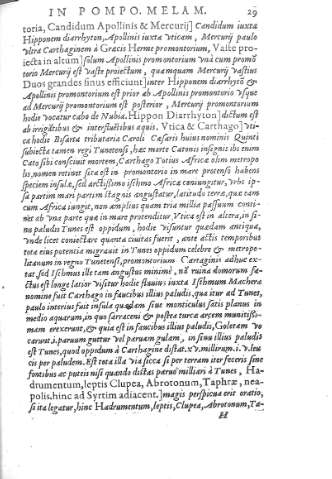 IN POMPO. MELAM. 29
toria, Candidum Apollinis & Mercurij] Candidum iuxta
Hipponem diarrhyton, Apollinis iuxta Vticam, Mercurij paulo
vltra Carthaginem à Græcis Herme promontorium, Vaste pro-
iecta in altum] solum Apollinis promontorium vnà cum promõ
torio Mercurij est vaste proiectum, quamquam Mercurij vastius
Duos grandes sinus efficiunt] inter Hipponem diarrhytõ &
Apollinis promontorium est prior ab Apollinis promontorio vsque
ad Mercurij promontorium est posterior, Mercurij promontorium
hodie vocatur cabo de Nubia. Hippon Diarrhyton] dictum est
ab irrigatibus & interfluētibus aquis. Vtica & Carthago] Vti-
ca hodie Biserta tributaria Caroli Cæsaris huius nominis Quinti
subiecta tamen regi Tunetensi, hæc morte Catonis insignis ibi enim
Cato sibi consciuit mortem, Carthago Totius Africæ olim metropo
lis, nomen retinet sita est in promontorio in mare protenso habens
speciem insulæ, sed arctissimo isthmo Africæ coniungitur, vrbs ip-
sa partim mari partim stagnis angustatur, latitudo terræ, qua cum
cum Africa iungit, non amplius quam tria millia passuum conti-
net ab vna parte qua in mare protenditur Vtica est in altera, in si-
nu paludis Tunes est oppidum, hodie visuntur quædam antiqua,
vnde licet coniectare quanta ciuitas fuerit, ante actis temporibus
tota eius potentia migrauit in Tunes oppidum celebre & metropo-
litanum in regno Tunetensi, promontorium Cartaginis adhuc ex-
tat, sed Isthmus ille tam angustus minime, nã ruina domorum fa-
ctus est longe latior visitur hodie stauius iuxta Isthmum Machera
nomine fuit Carthago in faucibus illius paludis, qua itur ad Tunes,
paulo interius fuit insula quædam siue monticulus satis planus in
medio aquarum, in quo sarraceni & postea turcæ arcem munitissi-
mam erexerunt, & quia est in faucibus illius paludis, Goletam vo
carunt .i. paruum guttur vel paruam gulam, in sinu illius paludis
est Tunes, quod oppidum à Carthagine distat .xv. millium .i. v. leu-
cis per paludem. Est tota illa via sicca si per terram iter feceris sine
fontibus ac puteis nisi quando distas paruo milliari à Tunes, Ha-
drumentum, leptis Clupea, Abrotonum, Taphræ, nea-
polis, hinc ad Syrtim adiacent.] magis perspicua erit oratio,
si ita legatur, hinc Hadrumentum, leptis, Clupea, Abrotonum, Ta-